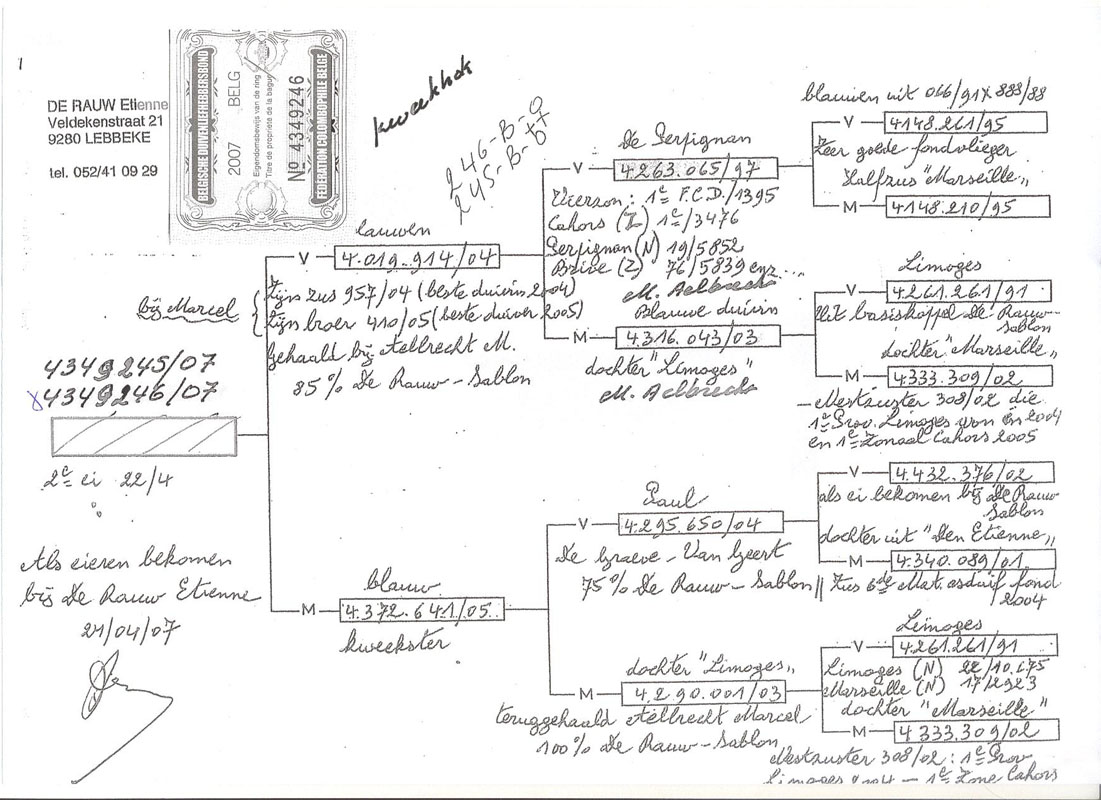 DE RAUW Etienne
Veldekenstraat 21
9280 LEBBEKE
tel. 052/41 09 29
BELGISCHE DUIVENLIEFHEBBERSBOND
2007 BELG
Eigendomsbewijs van de ring
Titre de propriété de la bague
Nº 4349246
FEDERATION COLOMBOPHILE BELGE
kweekhok
246-B-07
245-B-07
bij Marcel
4349245/07
4349246/07
2e ei 22/4
Als eieren bekomen
bij De Rauw Etienne
21/04/07
lauwen
V
4.019.914/04
Zijn zus 957/04 (beste duivin 2004)
Zijn broer 410/05 (beste duiver 2005)
gehaald bij Aelbrecht M.
85% De Rauw-Sablon
blauw
M
4.372.641/05
kweekster
De Perpignan
V
4.263.065/97
Vierzon: 1e F.C.D./1395
Cahors (Z) 1e/3476
Perpignan (N) 19/5852
Brive (Z) 76/5839 enz...
M. Aelbrecht
Blauwe duivin
M
4.316.043/03
dochter "Limoges"
M. Aelbrecht
Paul
V
4.295.650/04
De Graeve-Van Geert
75% De Rauw-Sablon
dochter "Limoges"
M
4.290.001/03
teruggehaald Aelbrecht Marcel
100% De Rauw-Sablon
blauwen uit 066/91 x 888/88
V
4148.261/95
Zeer goede fondvlieger
Halfzus "Marseille"
M
4148.210/95
Limoges
V
4.261.261/91
Uit basiskoppel De Rauw-
Sablon
dochter "Marseille"
M
4.333.309/02
- Nestzuster 308/02 die
1e Prov. Limoges won in 2004
en 1e Zonaal Cahors 2005
V
4.432.376/02
als ei bekomen bij De Rauw
Sablon
dochter uit "Den Etienne"
M
4.340.089/01
Zus 6de Nat. asduif fond
2004
Limoges
V
4.261.261/91
Limoges (N) 22/10.675
Marseille (N) 17/2923
dochter "Marseille"
M
4.333.309/02
Nestzuster 308/02: 1e Prov
Limoges 2004 - 1e Zone Cahors